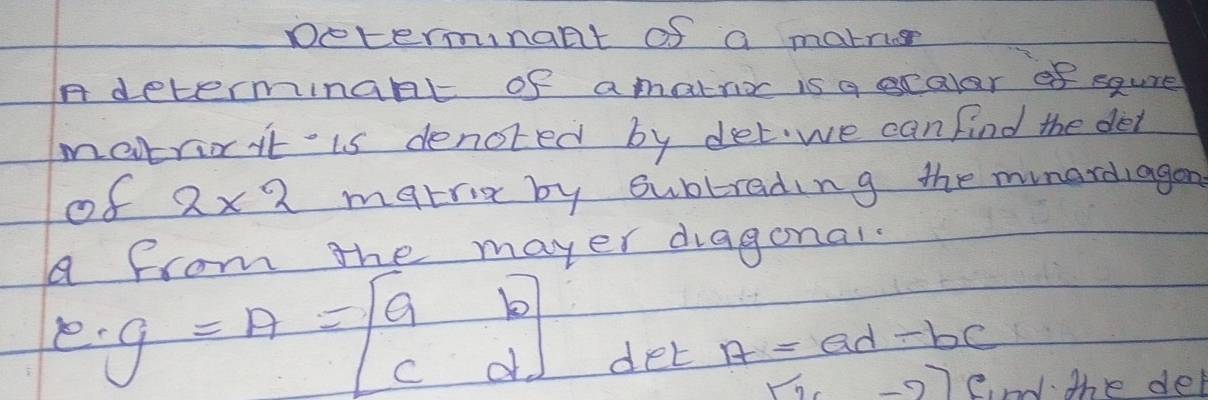 Determinant of a matrix
A determinant of a matrix is a scalar of squre
matrix it is denoted by det. we can find the det
of 2x2 matrix by subtrading the minardiagon
a from the mayer diagonal.
e.g = A = [a b
c d] det A = ad - bc
-2] find the det